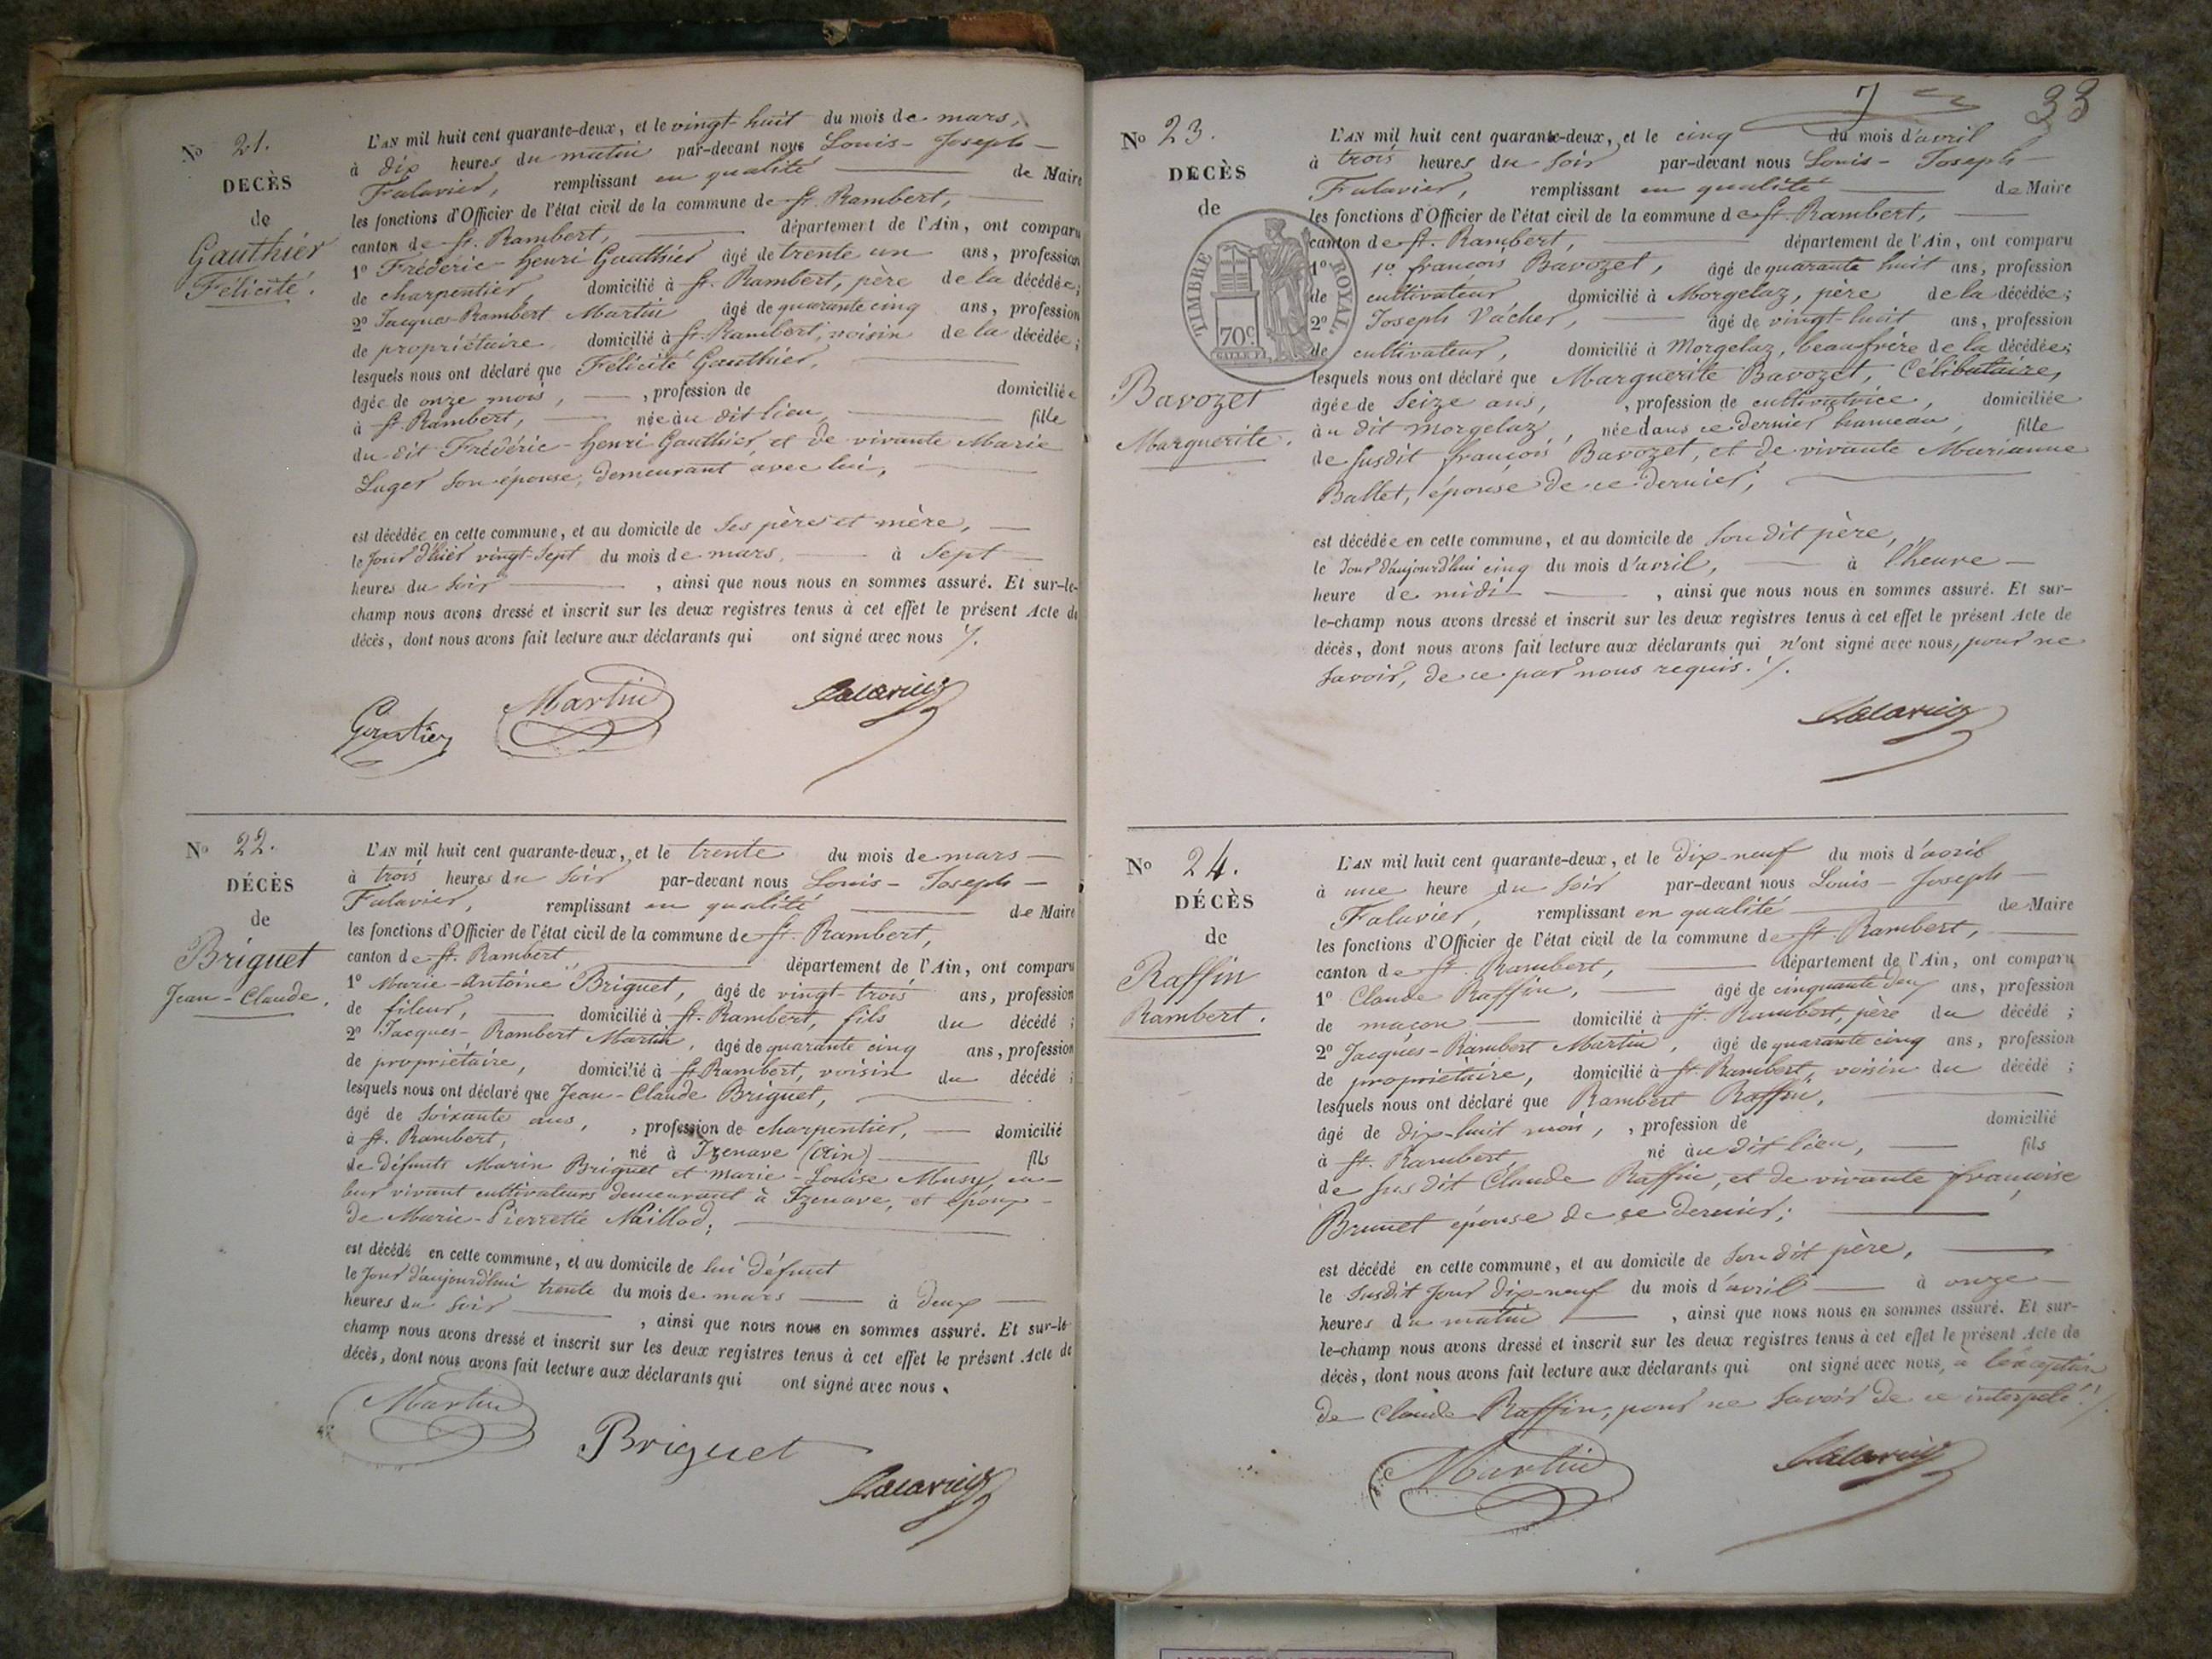 No 21.
DECÈS
de
Gauthier
Félicité.
L'AN mil huit cent quarante-deux, et le vingt-huit du mois de mars,
à dix heures du matin par-devant nous Louis-Joseph
Falavier, remplissant en qualité de Maire
les fonctions d'Officier de l'état civil de la commune de St. Rambert,
canton de St. Rambert, département de l'Ain, ont comparu
1o Fréderic-henri Gauthier âgé de trente un ans, profession
de charpentier, domicilié à St. Rambert, père de la décédée;
2o Jacques-Rambert Martin âgé de quarante cinq ans, profession
de propriétaire domicilié à St. Rambert, voisin de la décédée;
lesquels nous ont déclaré que Félicité Gauthier,
âgée de onze mois, , profession de domiciliée
à St. Rambert, née au dit lieu, fille
du dit Fréderic-henri Gauthier, et de vivante Marie
Luger son épouse, demeurant avec lui,
est décédée en cette commune, et au domicile de ses père et mère,
le jour d'hier vingt-sept du mois de mars à sept
heures du soir , ainsi que nous nous en sommes assuré. Et sur-le-
champ nous avons dressé et inscrit sur les deux registres tenus à cet effet le présent Acte de
décès, dont nous avons fait lecture aux déclarants qui ont signé avec nous ./.
Gautier Martin Falavier
No 22.
DÉCÈS
de
Briguet
Jean-Claude.
L'AN mil huit cent quarante-deux, et le trente du mois de mars
à trois heures du soir par-devant nous Louis-Joseph
Falavier, remplissant en qualité de Maire
les fonctions d'Officier de l'état civil de la commune de St. Rambert,
canton de St. Rambert, département de l'Ain, ont comparu
1o Marie-Antoine Briguet, âgé de vingt-trois ans, profession
de fileur, domicilié à St. Rambert, fils du décédé;
2o Jacques-Rambert Martin, âgé de quarante cinq ans, profession
de propriétaire, domicilié à St. Rambert, voisin du décédé;
lesquels nous ont déclaré que Jean-Claude Briguet,
âgé de soixante ans, , profession de charpentier, domicilié
à St. Rambert, né à Izenave (Ain) fils
de défunts Marin Briguet et Marie-Louise Musy, en
leur vivant cultivateurs demeurant à Izenave, et époux
de Marie-Pierrette Maillod;
est décédé en cette commune, et au domicile de lui défunt
le jour d'aujourd'hui trente du mois de mars à deux
heures du soir , ainsi que nous nous en sommes assuré. Et sur-le-
champ nous avons dressé et inscrit sur les deux registres tenus à cet effet le présent Acte de
décès, dont nous avons fait lecture aux déclarants qui ont signé avec nous.
Martin Briguet Falavier
7 33
No 23.
DECÈS
de
TIMBRE ROYAL.
70c
Bavozet
Marguerite.
L'AN mil huit cent quarante-deux, et le cinq du mois d'avril
à trois heures du soir par-devant nous Louis-Joseph
Falavier, remplissant en qualité de Maire
les fonctions d'Officier de l'état civil de la commune de St. Rambert,
canton de St. Rambert, département de l'Ain, ont comparu
1o 1o françois Bavozet, âgé de quarante huit ans, profession
de cultivateur, domicilié à Morgelaz, père de la décédée;
2o Joseph Vacher, âgé de vingt-huit ans, profession
de cultivateur, domicilié à Morgelaz, beau frère de la décédée;
lesquels nous ont déclaré que Marguerite Bavozet, Célibataire,
âgée de seize ans, , profession de cultivatrice, domiciliée
au dit Morgelaz, née dans ce dernier hameau, fille
de susdit françois Bavozet, et de vivante Marianne
Ballet, épouse de ce dernier;
est décédée en cette commune, et au domicile de son dit père,
le jour d'aujourd'hui cinq du mois d'avril, à l'heure
heure de midi , ainsi que nous nous en sommes assuré. Et sur-
le-champ nous avons dressé et inscrit sur les deux registres tenus à cet effet le présent Acte de
décès, dont nous avons fait lecture aux déclarants qui n'ont signé avec nous, pour ne
savoir, de ce par nous requis. /.
Falavier
No 24.
DÉCÈS
de
Raffin
Rambert.
L'AN mil huit cent quarante-deux, et le dix-neuf du mois d'avril
à une heure du soir par-devant nous Louis-Joseph
Falavier, remplissant en qualité de Maire
les fonctions d'Officier de l'état civil de la commune de St. Rambert,
canton de St. Rambert, département de l'Ain, ont comparu
1o Claude Raffin, âgé de cinquante deux ans, profession
de maçon domicilié à St. Rambert, père du décédé;
2o Jacques-Rambert Martin, âgé de quarante cinq ans, profession
de propriétaire, domicilié à St. Rambert, voisin du décédé;
lesquels nous ont déclaré que Rambert Raffin,
âgé de dix-huit mois, , profession de domicilié
à St. Rambert né au dit lieu, fils
de susdit Claude Raffin, et de vivante françoise
Brunet épouse de ce dernier;
est décédé en cette commune, et au domicile de son dit père,
le susdit jour dix-neuf du mois d'avril à onze
heures du matin , ainsi que nous nous en sommes assuré. Et sur-
le-champ nous avons dressé et inscrit sur les deux registres tenus à cet effet le présent Acte de
décès, dont nous avons fait lecture aux déclarants qui ont signé avec nous, a l'exception
de Claude Raffin, pour ne savoir de ce interpelé. /.
Martin Falavier